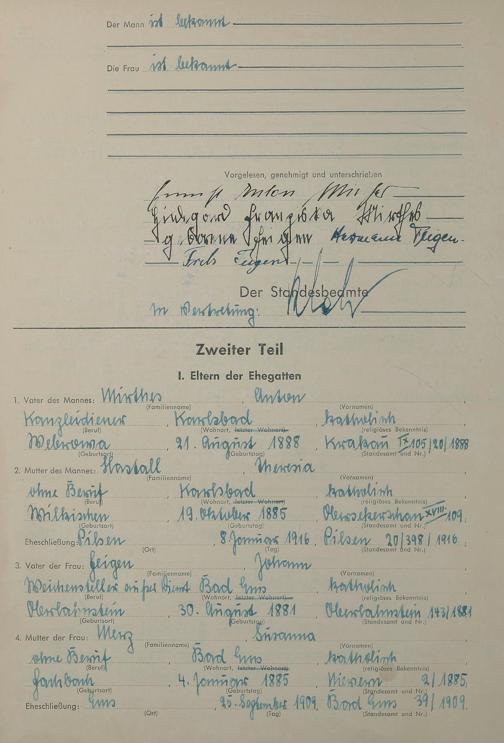 Der Mann ist bekannt
Die Frau ist bekannt
Vorgelesen, genehmigt und unterschrieben
Anton
Hildegard Franziska Mirthes
geborene Feigen Hermann Feigen.
Feigen
Der Standesbeamte
In Vertretung:
Zweiter Teil
I. Eltern der Ehegatten
1. Vater des Mannes: Mirthes, Anton,
(Familienname) (Vornamen)
Kanzleidiener, Karlsbad, katholisch
(Beruf) (Wohnort, letzter Wohnort) (religiöses Bekenntnis)
21. August 1888, Krakau IX 105/20/1888
(Geburtsort) (Geburtstag) (Standesamt und Nr.)
2. Mutter des Mannes: Theresia,
(Familienname) (Vornamen)
ohne Beruf, Karlsbad, katholisch
(Beruf) (Wohnort, letzter Wohnort) (religiöses Bekenntnis)
Wilkischen, 19. Oktober 1885, XVIII 109.
(Geburtsort) (Geburtstag) (Standesamt und Nr.)
Eheschließung: Pilsen, 8 Januar 1916, Pilsen 20/398/1916
(Ort) (Tag) (Standesamt und Nr.)
3. Vater der Frau: Feigen, Johann,
(Familienname) (Vornamen)
Weichensteller Bad Ems, katholisch
(Beruf) (Wohnort, letzter Wohnort) (religiöses Bekenntnis)
Oberlahnstein, 30. August 1881, Oberlahnstein 143/1881
(Geburtsort) (Geburtstag) (Standesamt und Nr.)
4. Mutter der Frau: Merz, Susanna
(Familienname) (Vornamen)
ohne Beruf, Bad Ems, katholisch
(Beruf) (Wohnort, letzter Wohnort) (religiöses Bekenntnis)
Fachbach, 4. Januar 1885, Nievern 2/1885,
(Geburtsort) (Geburtstag) (Standesamt und Nr.)
Eheschließung: Ems, 25. September 1909, Bad Ems 39/1909.
(Ort) (Tag) (Standesamt und Nr.)